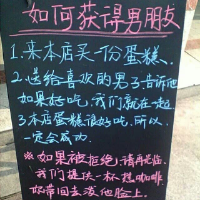 如何获得男朋友
1.来本店买一份蛋糕、
2.送给喜欢的男子告诉他
如果好吃,我们就在一起
3.本店蛋糕很好吃,所以
一定会成功.
※如果被拒绝,请再光临.
我们提供一杯热咖啡
你带回去泼他脸上.